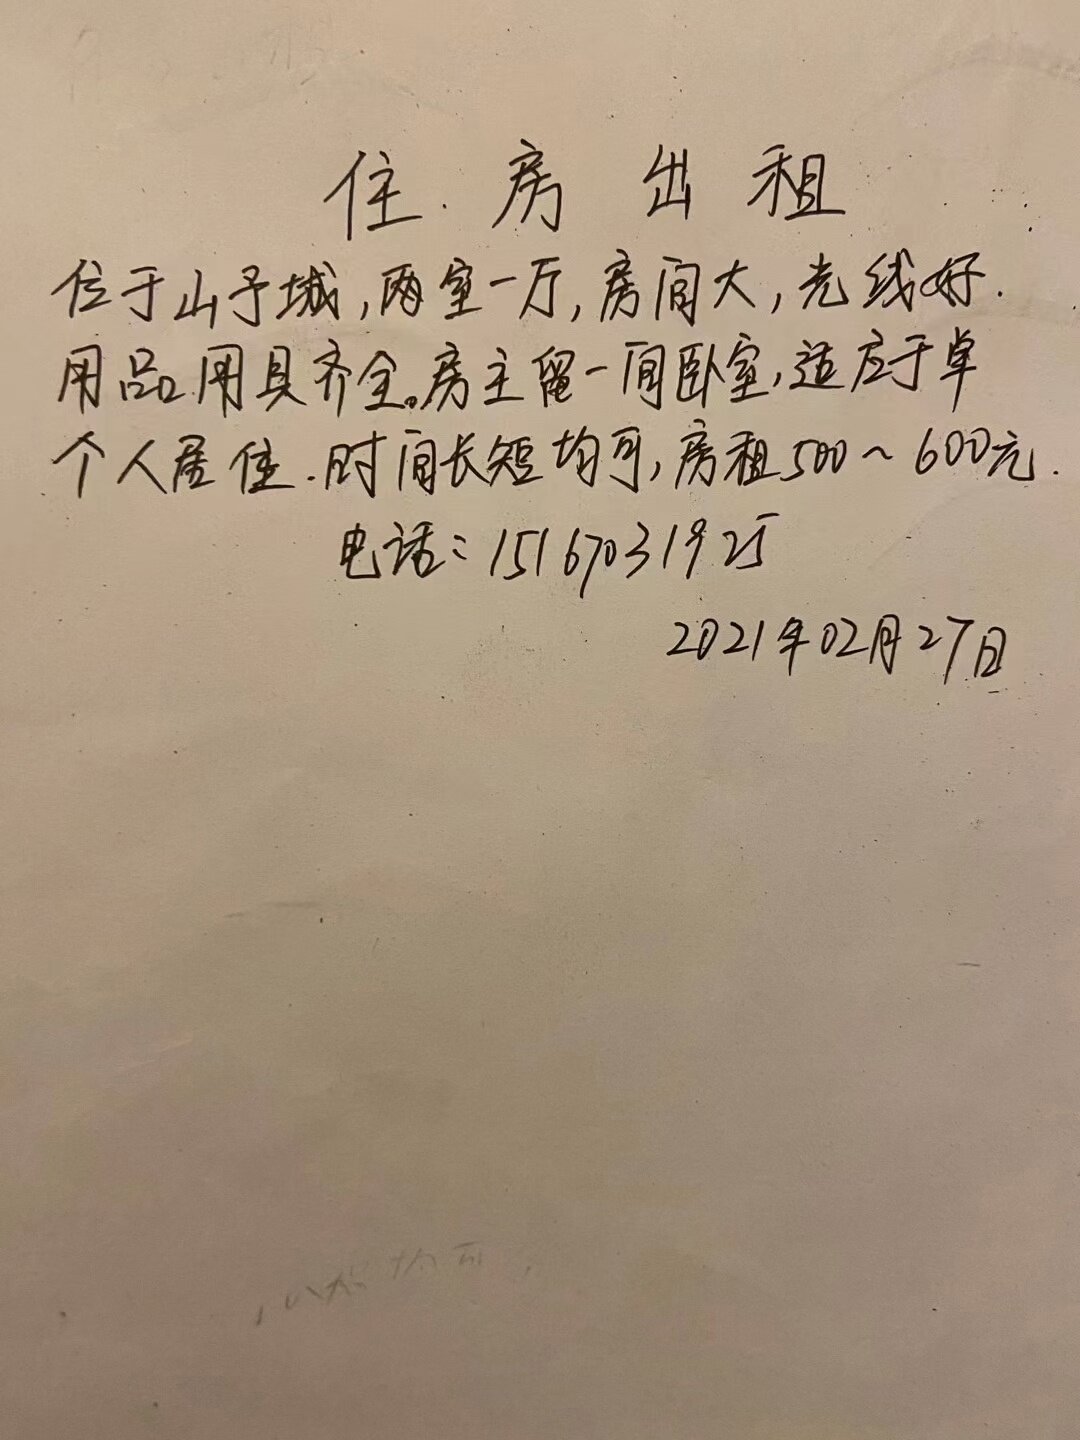 住房出租
位于山予城,两室一厅,房间大,光线好.
用品用具齐全。房主留一间卧室,适应于单
个人居住.时间长短均可,房租500~600元.
电话:15167031925
2021年02月27日